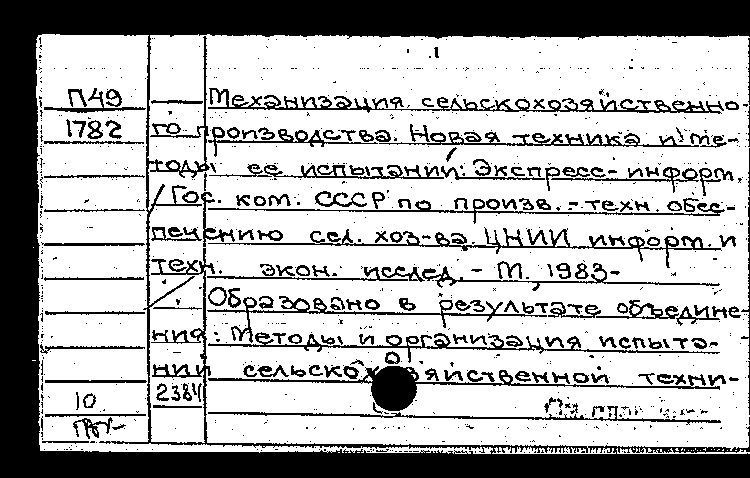 1
П49 Механизация сельскохозяйственно-
1782 го производства. Новая техника и ме-
тоды ее испытаний: Экспресс-информ.
/Гос. ком. СССР по произв.-техн. обес-
печению сел. хоз-ва. ЦНИИ информ. и
техн. экон. исслед. - М., 1983-
Образовано в результате объедине-
ния: Методы и организация испыта-
ний сельскохозяйственной техни-
10 2384 См. след